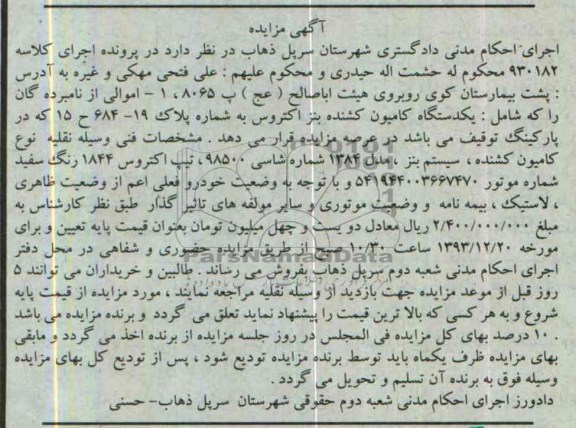 آگهی مزایده
اجرای احکام مدنی دادگستری شهرستان سرپل ذهاب در نظر دارد در پرونده اجرای کلاسه
۹۳۰۱۸۲ محکوم له حشمت اله حیدری و محکوم علیهم : علی فتحی مهکی و غیره به آدرس
: پشت بیمارستان کوی روبروی هیئت اباصالح ( عج ) پ ۸۰۶۵ ، ۱ - اموالی از نامبرده گان
را که شامل : یکدستگاه کامیون کشنده بنز اکتروس به شماره پلاک ۱۹- ۶۸۴ ح ۱۵ که در
پارکینگ توقیف می باشد در عرصه مزایده قرار می دهد . مشخصات فنی وسیله نقلیه نوع
کامیون کشنده ، سیستم بنز ، مدل ۱۳۸۴ شماره شاسی ۹۸۵۰۰، تیپ اکتروس ۱۸۴۴ رنگ سفید
شماره موتور ۵۴۱۹۴۴۰۰۳۶۶۷۴۷۰ و با توجه به وضعیت خودرو فعلی اعم از وضعیت ظاهری
، لاستیک ، بیمه نامه و وضعیت موتوری و سایر مولفه های تاثیر گذار طبق نظر کارشناس به
مبلغ ۲/۴۰۰/۰۰۰/۰۰۰ ریال معادل دو یست و چهل میلیون تومان بعنوان قیمت پایه تعیین و برای
مورخه ۱۳۹۳/۱۲/۲۰ ساعت ۱۰/۳۰ صبح از طریق مزایده حضوری و شفاهی در محل دفتر
اجرای احکام مدنی شعبه دوم سرپل ذهاب بفروش می رساند . طالبین و خریداران می توانند ۵
روز قبل از موعد مزایده جهت بازدید از وسیله نقلیه مراجعه نمایند ، مورد مزایده از قیمت پایه
شروع و به هر کسی که بالا ترین قیمت را پیشنهاد نماید تعلق می گردد و برنده مزایده می باشد
. ۱۰ درصد بهای کل مزایده فی المجلس در روز جلسه مزایده از برنده اخذ می گردد و مابقی
بهای مزایده ظرف یکماه باید توسط برنده مزایده تودیع شود ، پس از تودیع کل بهای مزایده
وسیله فوق به برنده آن تسلیم و تحویل می گردد .
دادورز اجرای احکام مدنی شعبه دوم حقوقی شهرستان سرپل ذهاب- حسنی
ParsNamadData